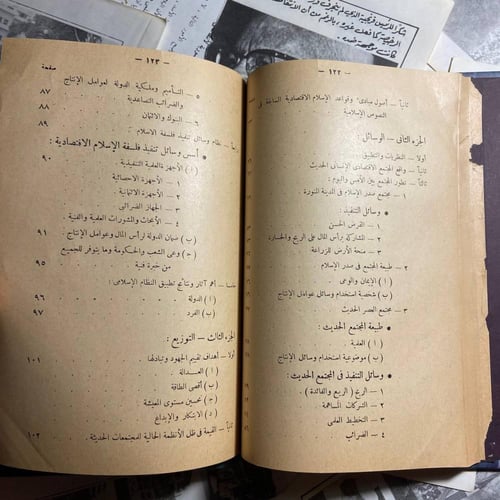 — ١٢٢ —
ثانياً — أصول مبادىء وقواعد الإسلام الاقتصادية السابقة فى
النصوص الإسلامية
الجزء الثانى — الوسائل :
أولا — النظريات والتطبيق
ثانياً — واقع المجتمع الاقتصادى الإنسانى الحديث
ثالثاً — تطور المجتمع بين الأمس واليوم :
١ — مجتمع صدر الإسلام فى المدينة المنورة
• وسائل التنفيذ :
١ — القرض الحسن
٢ — المشاركة برأس المال على الربح والخسارة
٣ — منحة الأرض للزراعة
٢ — طبيعة المجتمع فى صدر الإسلام
( ا ) الإيمان والوعى
(ب) شخصية استخدام وسائل عوامل الإنتاج
٣ — مجتمع العصر الحديث
• طبيعة المجتمع الحديث :
( ا ) العقلية
(ب) موضوعية استخدام وسائل الإنتاج
• وسائل التنفيذ فى المجتمع الحديث :
١ — الربح ( الريع والفائدة )
٢ — الشركات المساهمة
٣ — التخطيط العلمى
٤ — الضرائب
— ١٢٣ —
صفحة
٥ — التأميم وملكية الدولة لعوامل الإنتاج
والضرائب التصاعدية ٨٧
٦ — البنوك والائتمان ٨٨
نظام وسائل تنفيذ فلسفة الإسلام ٨٩
• أسس وسائل تنفيذ فلسفة الإسلام الاقتصادية :
( ا ) الأجهزة العقلية التنفيذية ٩٠
١ — الأجهزة الاحصائية
٢ — الأجهزة الائتمانية
٣ — الجهاز الضرائبى
٤ — الأبحاث والمشورات العقلية والفنية
(ب) ضمان الدولة لرأس المال وعوامل الإنتاج ٩١
(ج) وعى الشعب والحكومة وما يتوفر للجميع
من خبرة فنية ٩٥
خامساً — أهم آثار ونتائج تطبيق النظام الإسلامى
( ا ) الدولة ٩٦
(ب) الفرد ٩٧
الجزء الثالث — التوزيع :
أولا — أهداف تقييم الجهود وتبادلها ١٠١
( ا ) العدالة
(ب) أقصى الطاقة
(ج) تحسين مستوى المعيشة
(د) الابتكار والإبداع
ثانياً — القيمة فى ظل الأنظمة الحالية لمجتمعات الحديثة ١٠٢